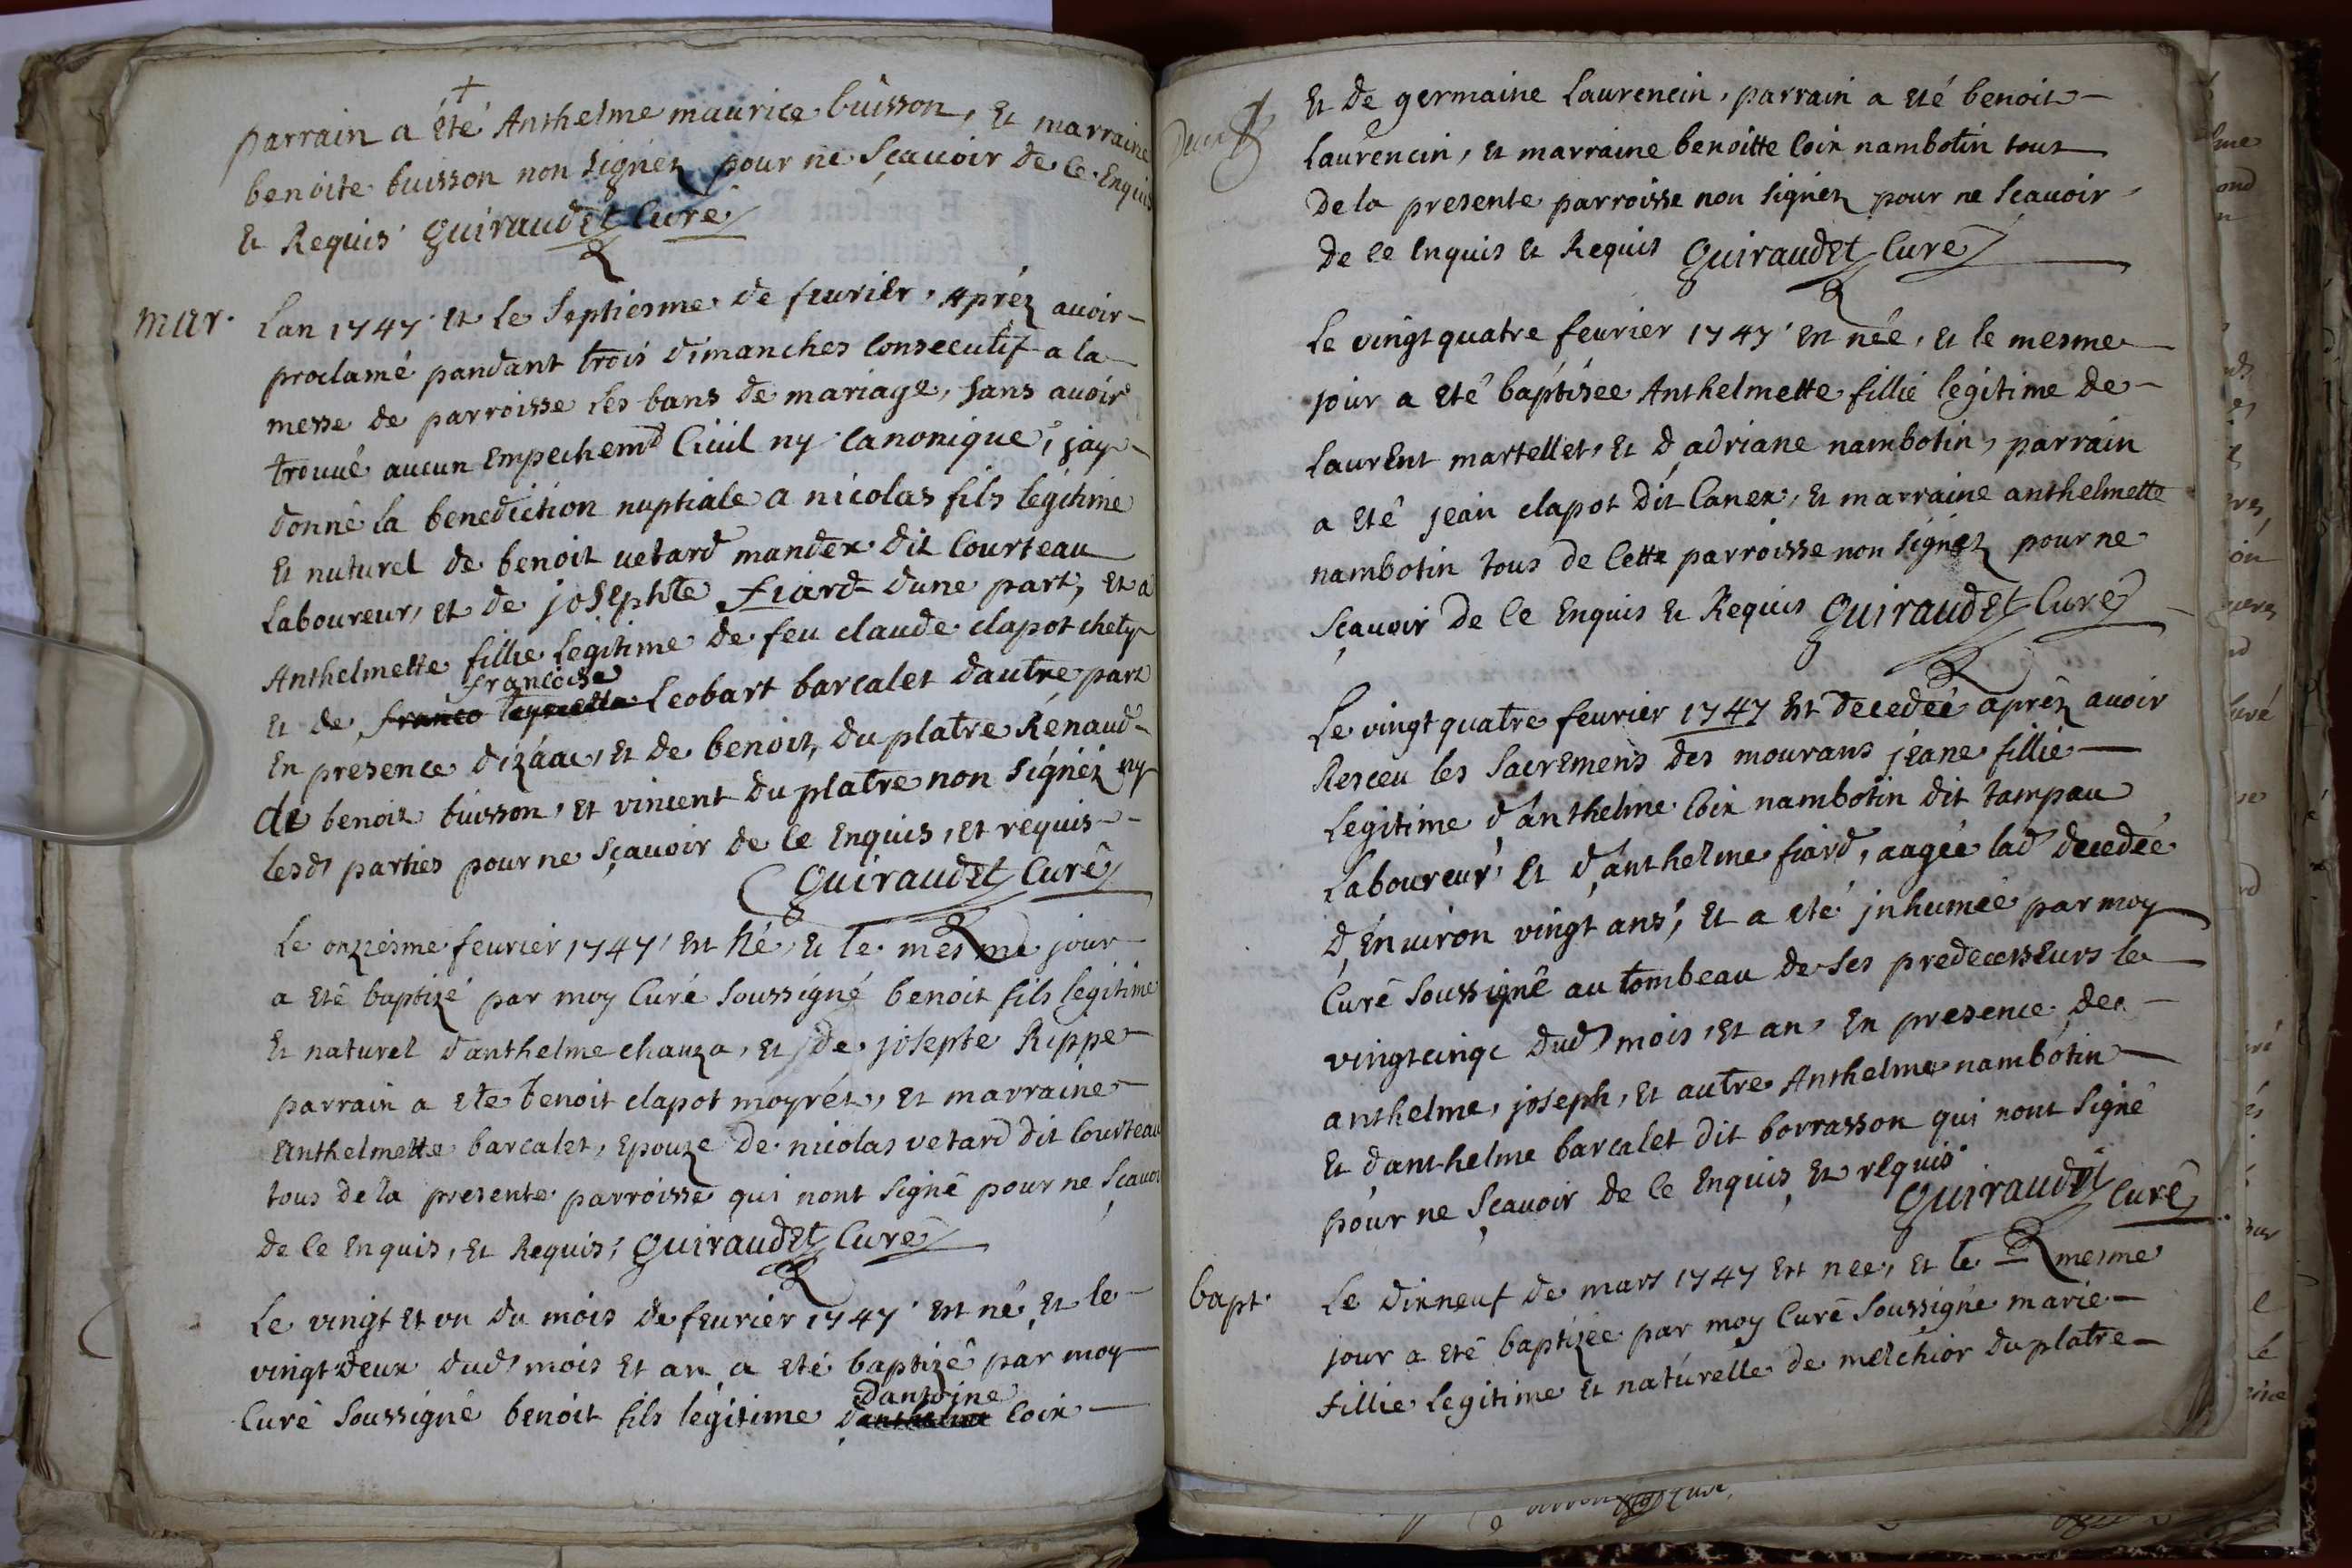 parrain a été Anthelme maurice buisson, Et marraine
benoite buisson non signez pour ne Sçavoir de ce Enquis
Et Requis Guiraudet Curé
mar. Lan 1747 et le septiesme de feurier, Apréz auoir
proclamé pandant trois dimanches Consecutif a la
messe de parroisse les bans de mariage, sans auoir
trouué aucun Empechemt Ciuil ny Canonique, jay
donné la benediction nuptiale a nicolas fils legitime
Et naturel de benoit uetard mander dit Courteau
Laboureur, et de josephte fiard dune part, et a
Anthelmette fillie legitime de feu claude clapot chety
francoise
et de Leobart barcalet dautre part
En presence dizáac, et de benoit, du platre Renaud
de benoit buisson, et vincent du platre non signéz ny
lesds parties pour ne sçauoir de ce Enquis, et requis
Guiraudet Curé
Le onziesme feurier 1747 est né, et le mesme jour
a eté baptizé par moy Curé Soussigné benoit fils legitime
Et naturel danthelme chauza, et de josepte Rippe
parrain a eté benoit clapot moyrét, et marraine
Anthelmette barcalet, epouze de nicolas vetard dit Courteau
tous de la presente parroisse qui nont signé pour ne sçauoir
de ce Enquis, et Requis, Guiraudet Curé
Le vingt et vn du mois de feurier 1747 est né, et le
vingt deux dud mois et an a eté baptizé par moy
dantoine
Curé Soussigné benoit fils légitime danthelme Coix
Et de germaine Laurencin, parrain a eté benoit
Laurencin, et marraine benoitte Coix nambotin tous
de la presente parroisse non signez pour ne Scauoir
de ce Enquis et Requis Guiraudet Curé
Le vingt quatre feurier 1747 est née, et le mesme
jour a eté baptisée Anthelmette fillie legitime de
Laurent martellet, et d'adriane nambotin, parrain
a eté jean clapot dit Canex, et marraine anthelmette
nambotin tous de Cette parroisse non signez pour ne
sçauoir de ce Enquis et Requis Guiraudet Curé
Le vingt quatre feurier 1747 est decedée apréz auoir
Resceu les Sacremens des mourans jeane fillie
legitime d'anthelme Coix nambotin dit tampau
Laboureur et d'anthelme fiard, aagée lad decedée
d'Enuiron vingt ans, et a eté jnhumée par moy
Curé Soussigné au tombeau de ses predecesseurs le
vingtcinqc dud mois, et an, En presence de
anthelme, joseph, et autre Anthelme nambotin
et d'anthelme barcalet dit borrasson qui nont signé
pour ne sçauoir de ce Enquis et requis
Guiraudet Curé
bapt. Le dixneuf de mars 1747 est née, et le mesme
jour a eté baptizée par moy Curé Soussigné marie
fillie legitime et naturelle de melchior du platre